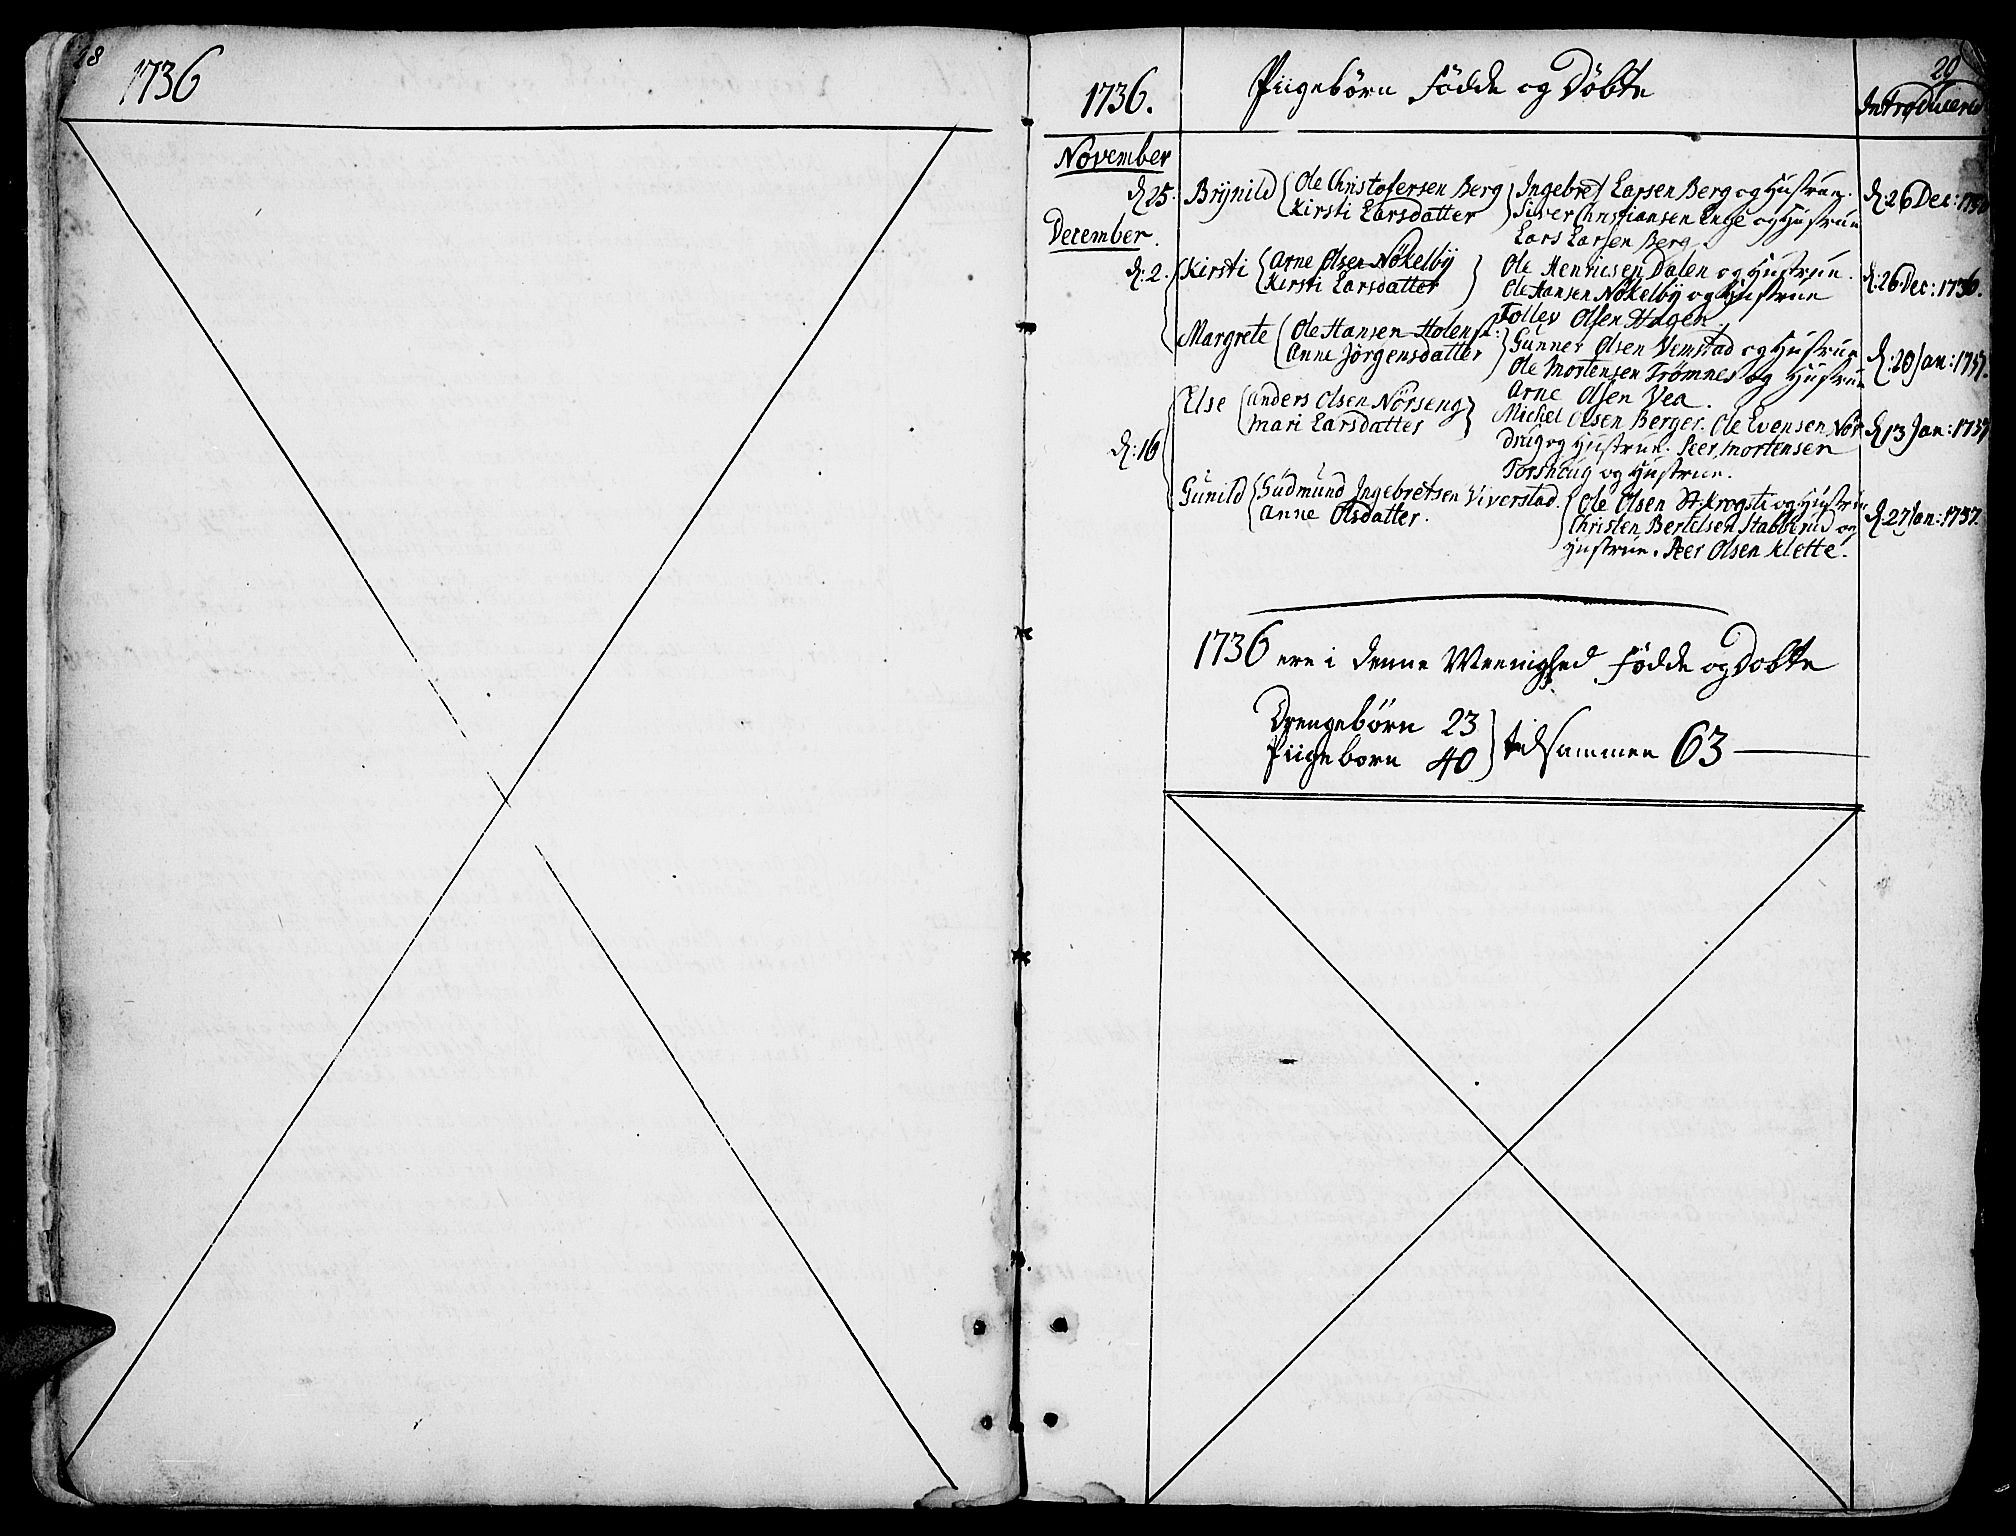 28
1736
29
1736. Piigebørn Födde og Döbte Introducered
November
d 25. Brÿnild Ole Christofersen Berg Ingebret Larsen Berg og Hustrue. d. 26 Dec: 1736
Kirsti Larsdatter Siver Christiansen Enge og Hustrue
December. Lars Larsen Berg
d. 2. Kirsti Arne Olsen Nökelbÿ Ole Henricsen Dalen og Hustrue. d. 26 Dec: 1736.
Kirsti Larsdatter Ole Hansen Nökelbÿ og Hustrue
Tollev Olsen Hagen
Margrete Ole Hansen Holenst: Gunner Olsen Vemstad og Hustrue d. 20 Jan: 1737.
Anne Jørgensdatter Ole Mortensen Frömnes og Hustrue
Arne Olsen Vea.
Else Anders Olsen Nörseng Michel Olsen Berger. Ole Evensen Nör d. 13 Jan: 1737
Mari Larsdatter
d: 16 drug og Hustrue. Peer Mortensen
Torshaug og Hustrue.
Gunild Gudmund Ingebretsen Viverstad. Ole Olsen St. Krogsti og Hustrue d. 27 Jan: 1737.
Anne Olsdatter. Christen Bertelsen Stabberud og
Hustrue. Peer Olsen Klette.
1736 ere i denne Meenighed Födde og Dobte
Drengebörn 23
tilsammen 63
Piigeborn 40